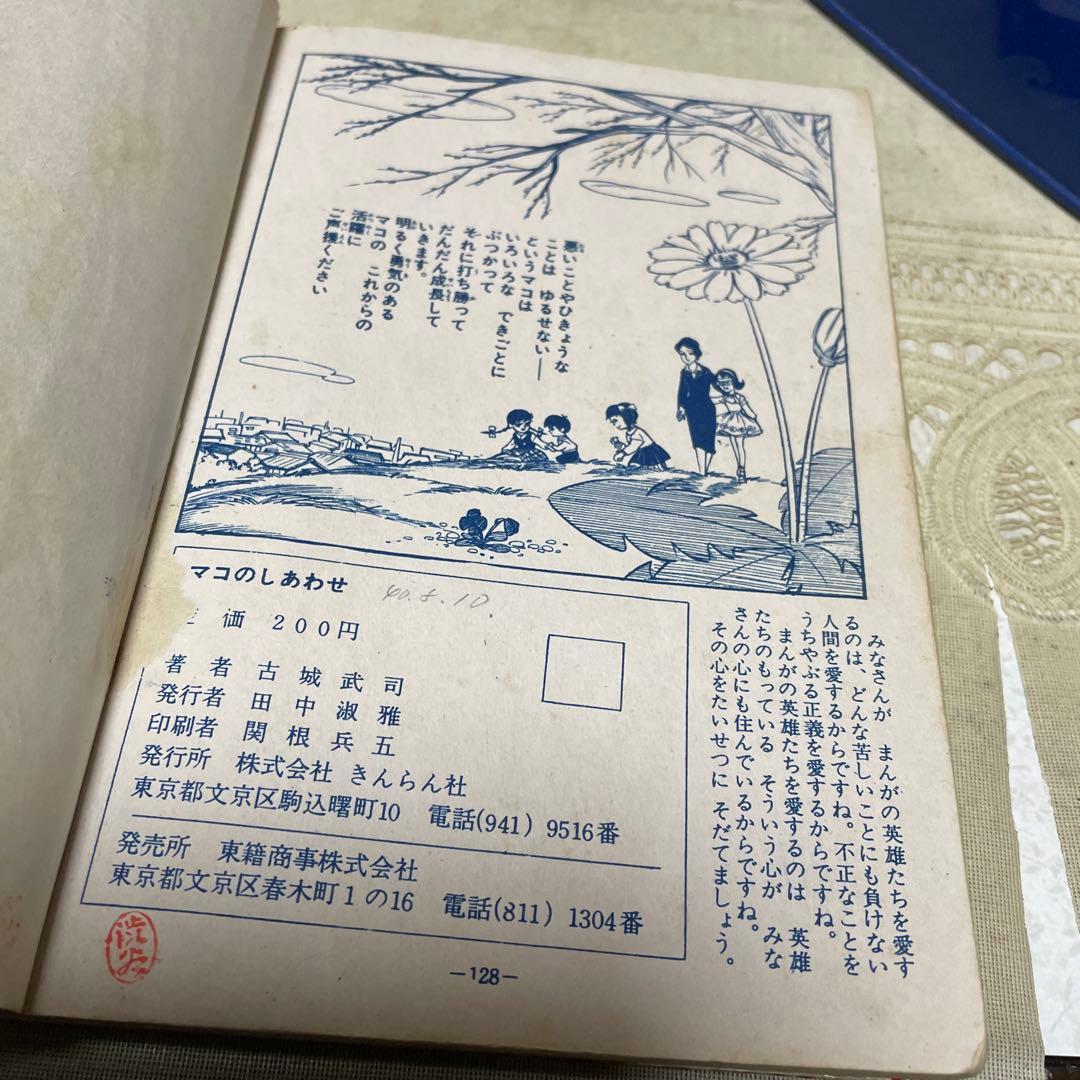 悪いことやひきょうな
ことは ゆるせない——
というマコは
いろいろな できごとに
ぶつかって
それに打ち勝って
だんだん成長して
いきます。
明るく勇気のある
マコの これからの
活躍に
ご声援ください
マコのしあわせ
40.8.10.
価 200円
著者 古城武司
発行者 田中淑雅
印刷者 関根兵五
発行所 株式会社 きんらん社
東京都文京区駒込曙町10 電話(941) 9516番
発売所 東籍商事株式会社
東京都文京区春木町1の16 電話(811) 1304番
みなさんが まんがの英雄たちを愛す
るのは、どんな苦しいことにも負けない
人間を愛するからですね。不正なことを
うちやぶる正義を愛するからですね。
まんがの英雄たちを愛するのは 英雄
たちのもっている そういう心が みな
さんの心にも住んでいるからですね。
その心をたいせつに そだてましょう。
—128—